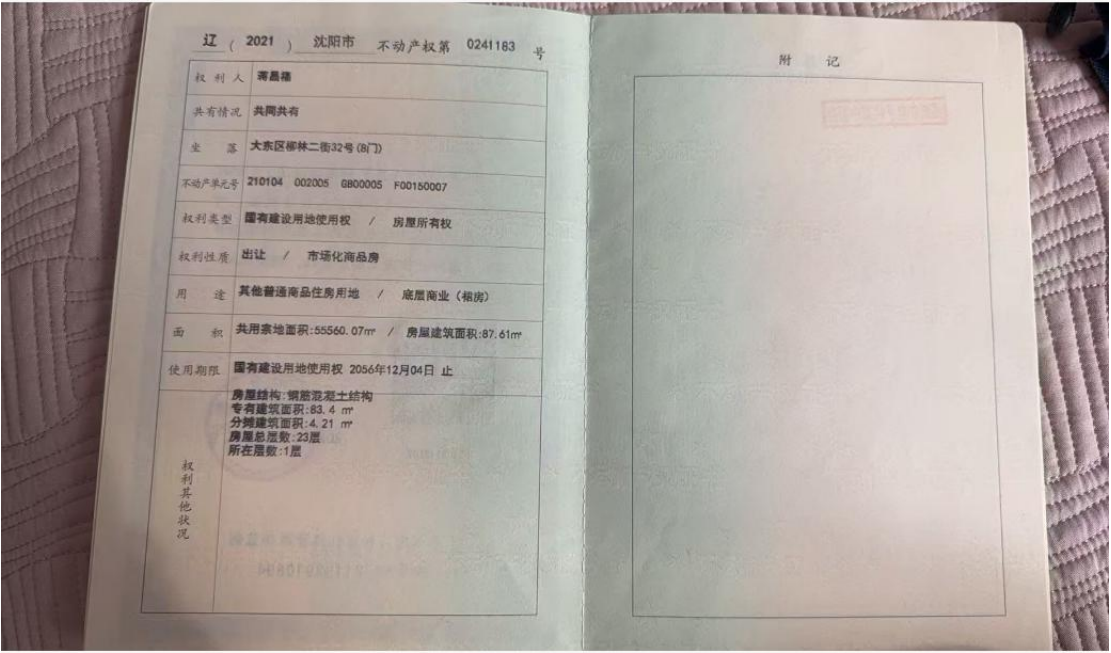 辽 ( 2021 ) 沈阳市 不动产权第 0241183 号
权利人 蒋晶楠
共有情况 共同共有
坐落 大东区柳林二街32号(8门)
不动产单元号 210104 002005 GB00005 F00150007
权利类型 国有建设用地使用权 / 房屋所有权
权利性质 出让 / 市场化商品房
用途 其他普通商品住房用地 / 底层商业(裙房)
面积 共用宗地面积:55560.07㎡ / 房屋建筑面积:87.61㎡
使用期限 国有建设用地使用权 2056年12月04日 止
权利其他状况
房屋结构:钢筋混凝土结构
专有建筑面积:83.4 ㎡
分摊建筑面积:4.21 ㎡
房屋总层数:23层
所在层数:1层
附记